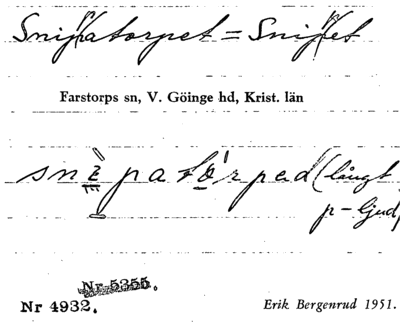 Snippatorpet = Snippet
Farstorps sn, V. Göinge hd, Krist. län
snèpatórpad (långt
p-ljud
Nr 5355.
Nr 4932.
Erik Bergenrud 1951.